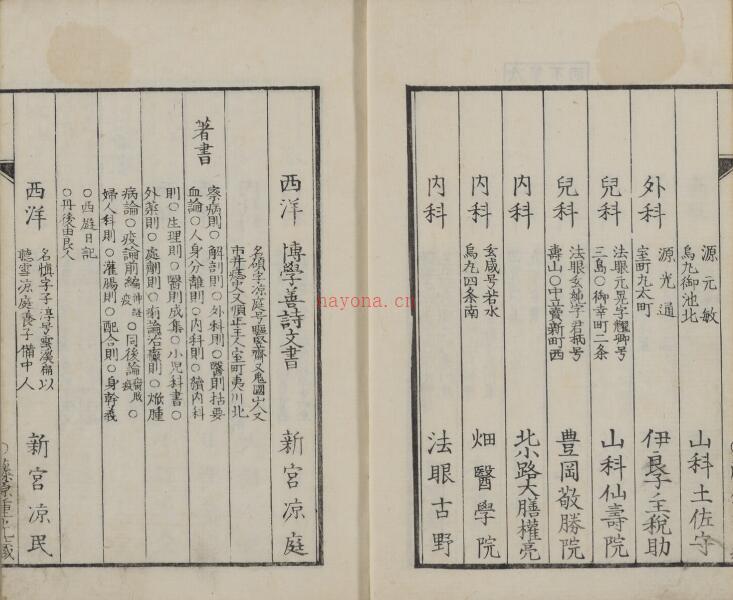 源元敏
烏丸御池北
山科土佐守
外科
源光通
室町九太町
伊良子主税助
兒科
法眼元晃字耀卿号
三島○御幸町二条
山科仙壽院
兒科
法眼玄
字君柄号
壽山○中立賣新町西
豊岡敬勝院
内科
北小路大膳權亮
内科
玄咸号若水
烏丸四条南
畑醫學院
内科
法眼古野
西洋
博學善詩文書
新宮凉庭
名碩字凉庭号驅豎齋又鬼國山人又
市井
又順正主人室町夷川北
著書
察病則○解剖則○外科則○醫則拈要
血論○人身分離則○内科則○續内科
則○生理則○醫則成集○小兒科書○
外薬則○處劑則○痢論治藥則○焮腫
病論○疫論前編神誣疫○同後編腐敗疫○
婦人科則○灌腸則○配合則○身幹義
○西遊日記
○丹後由良人
西洋
名愼字子淳号
溪
以
聽雪凉庭養子備中人
新宮凉民
nayona.cn